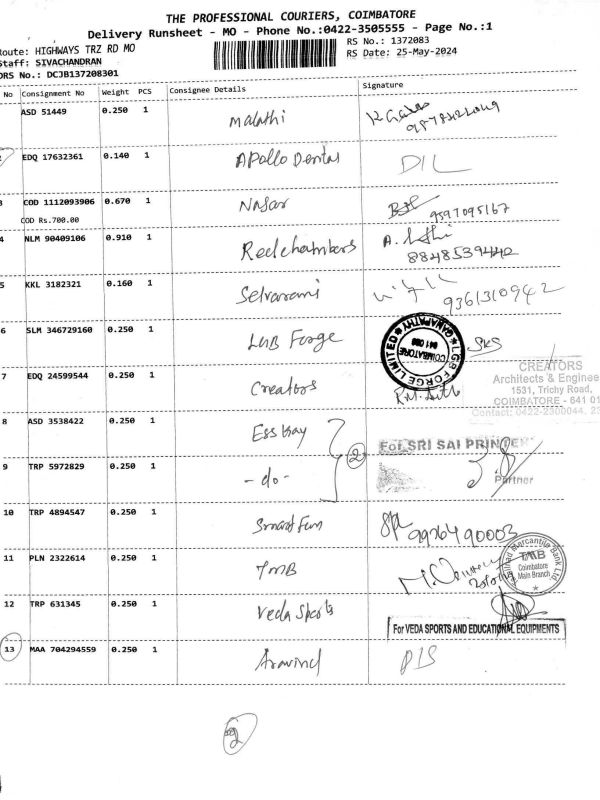 THE PROFESSIONAL COURIERS, COIMBATORE
Delivery Runsheet - MO - Phone No.:0422-3505555 - Page No.:1
Route: HIGHWAYS TRZ RD MO
RS No.: 1372083
Staff: SIVACHANDRAN
RS Date: 25-May-2024
DRS No.: DCJB137208301
No Consignment No Weight PCS Consignee Details Signature
ASD 51449 0.250 1 Malathi
EDQ 17632361 0.140 1 Apollo Dental DIL
3 COD 1112093906 0.670 1 Nasar 9597095167
COD Rs.700.00
4 NLM 90409106 0.910 1 Redchambers 8848539442
5 KKL 3182321 0.160 1 Selvarani 9361310942
6 SLM 346729160 0.250 1 LGB Forge SKS
L.G.B. FORGE LIMITED
GANAPATHY
COIMBATORE
7 EDQ 24599544 0.250 1 Creators
CREATORS
Architects & Enginee
1531, Trichy Road,
COIMBATORE - 641 01
Contact: 0422-2300044. 23
8 ASD 3538422 0.250 1 Ess Kay
2
For SRI SAI PRIN
9 TRP 5972829 0.250 1 -do-
Partner
10 TRP 4894547 0.250 1 9926490003
11 PLN 2322614 0.250 1 TMB
Mercantile Bank Ltd
TMB
Coimbatore
Main Branch
12 TRP 631345 0.250 1 Veda Sports
For VEDA SPORTS AND EDUCATIONAL EQUIPMENTS
13 MAA 704294559 0.250 1 Aravind